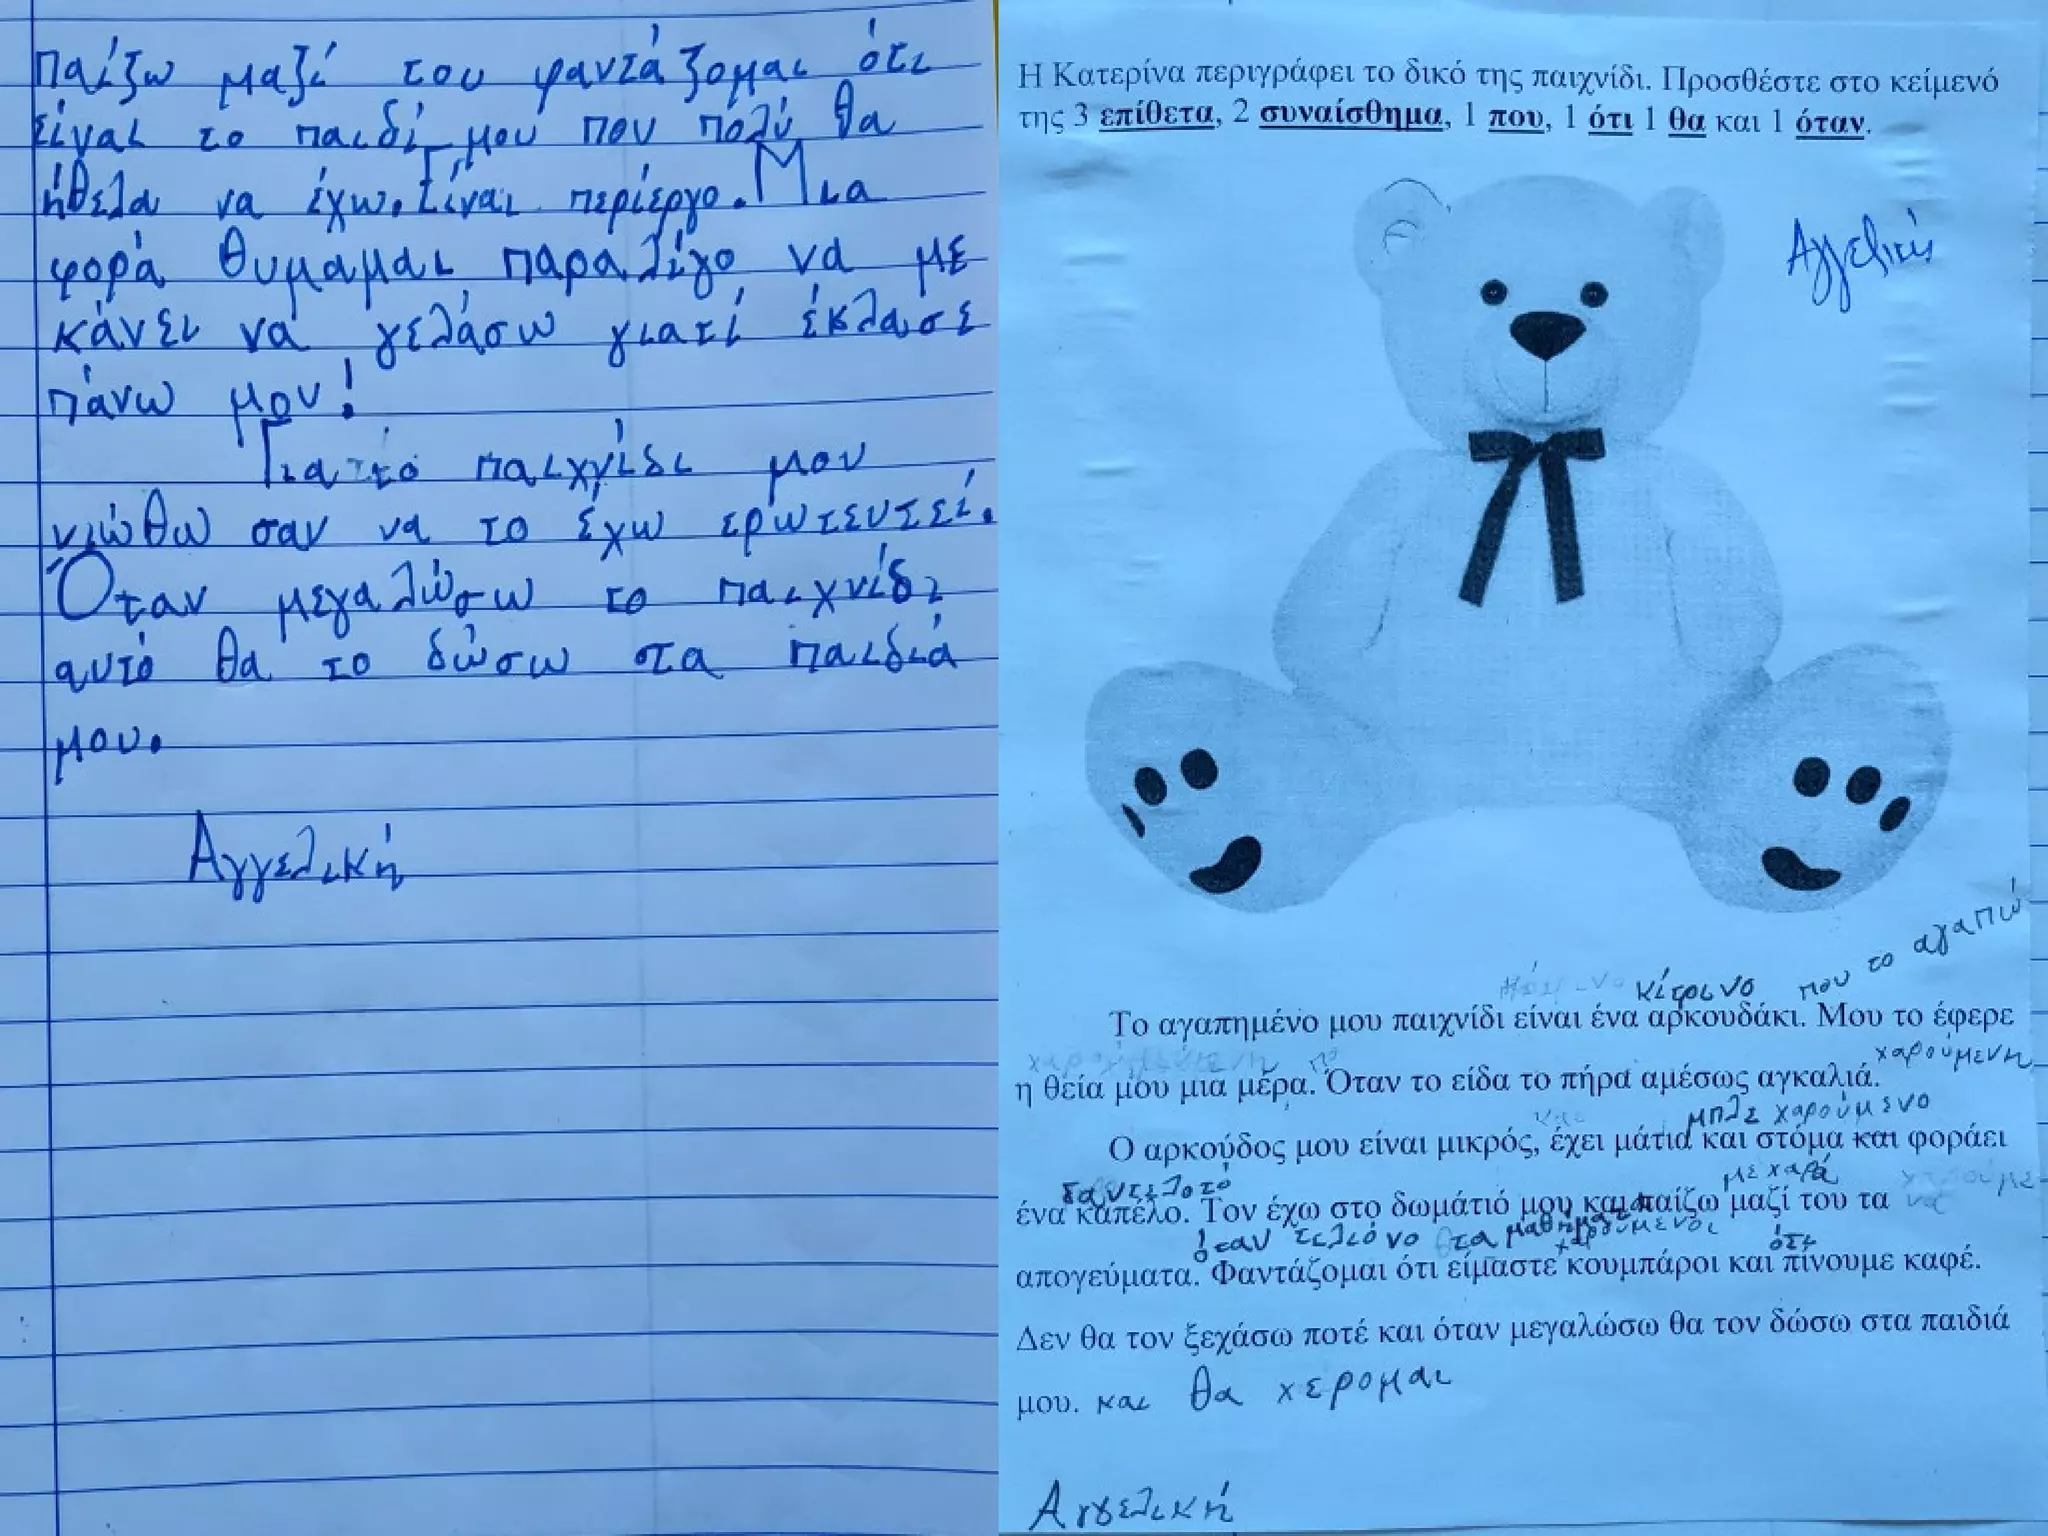 παίζω μαζί του φαντάζομαι ότι
είναι το παιδί μου που πολύ θα
ήθελα να έχω. Είναι περίεργο. Μια
φορά θυμάμαι παραλίγο να με
κάνει να γελάσω γιατί έκλασε
πάνω μου!
Για το παιχνίδι μου
νιώθω σαν να το έχω ερωτευτεί.
Όταν μεγαλώσω το παιχνίδι
αυτό θα το δώσω στα παιδιά
μου.
Αγγελική
Η Κατερίνα περιγράφει το δικό της παιχνίδι. Προσθέστε στο κείμενό
της 3 επίθετα, 2 συναίσθημα, 1 που, 1 ότι 1 θα και 1 όταν.
Αγγελική
κίτρινο που το αγαπώ
Το αγαπημένο μου παιχνίδι είναι ένα αρκουδάκι. Μου το έφερε
χαρούμενη
η θεία μου μια μέρα. Όταν το είδα το πήρα αμέσως αγκαλιά.
μπλε χαρούμενο
Ο αρκούδος μου είναι μικρός, έχει μάτια και στόμα και φοράει
δαντελοτό με χαρά
ένα καπέλο. Τον έχω στο δωμάτιό μου και παίζω μαζί του τα
όταν τελιόνο τα μαθήματα χαρούμενοι ότι
απογεύματα. Φαντάζομαι ότι είμαστε κουμπάροι και πίνουμε καφέ.
Δεν θα τον ξεχάσω ποτέ και όταν μεγαλώσω θα τον δώσω στα παιδιά
μου. και θα χερομαι
Αγγελική